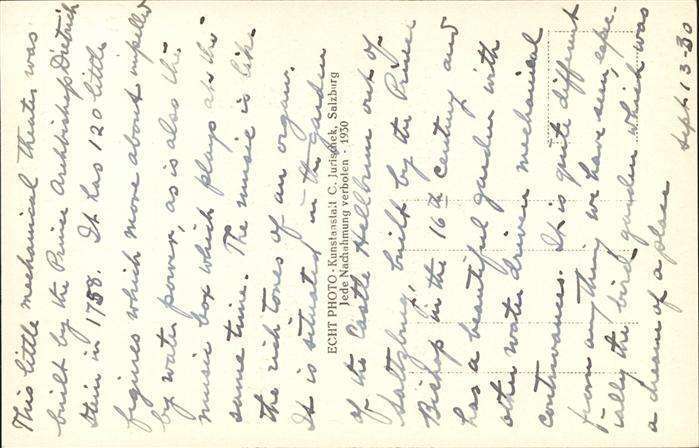 This little mechanical theater was
built by the Prince Archbishop Dietrich
stein in 1758. It has 120 little
figures which move about impelled
by water power, as is also the
music box which plays at the
same time. The music is like
the rich tones of an organ.
It is situated in the garden
ECHT PHOTO - Kunstanstalt C. Jurischek, Salzburg
Jede Nachahmung verboten - 1930
of the Castle Hellbrunn out of
Saltzburg, built by the Prince
Bishop in the 16th century and
has a beautiful garden with
other water driven mechanical
contrivances. It is quite different
from anything we have seen, espe-
cially the bird garden which was
a dream of a place
Sept 13-30